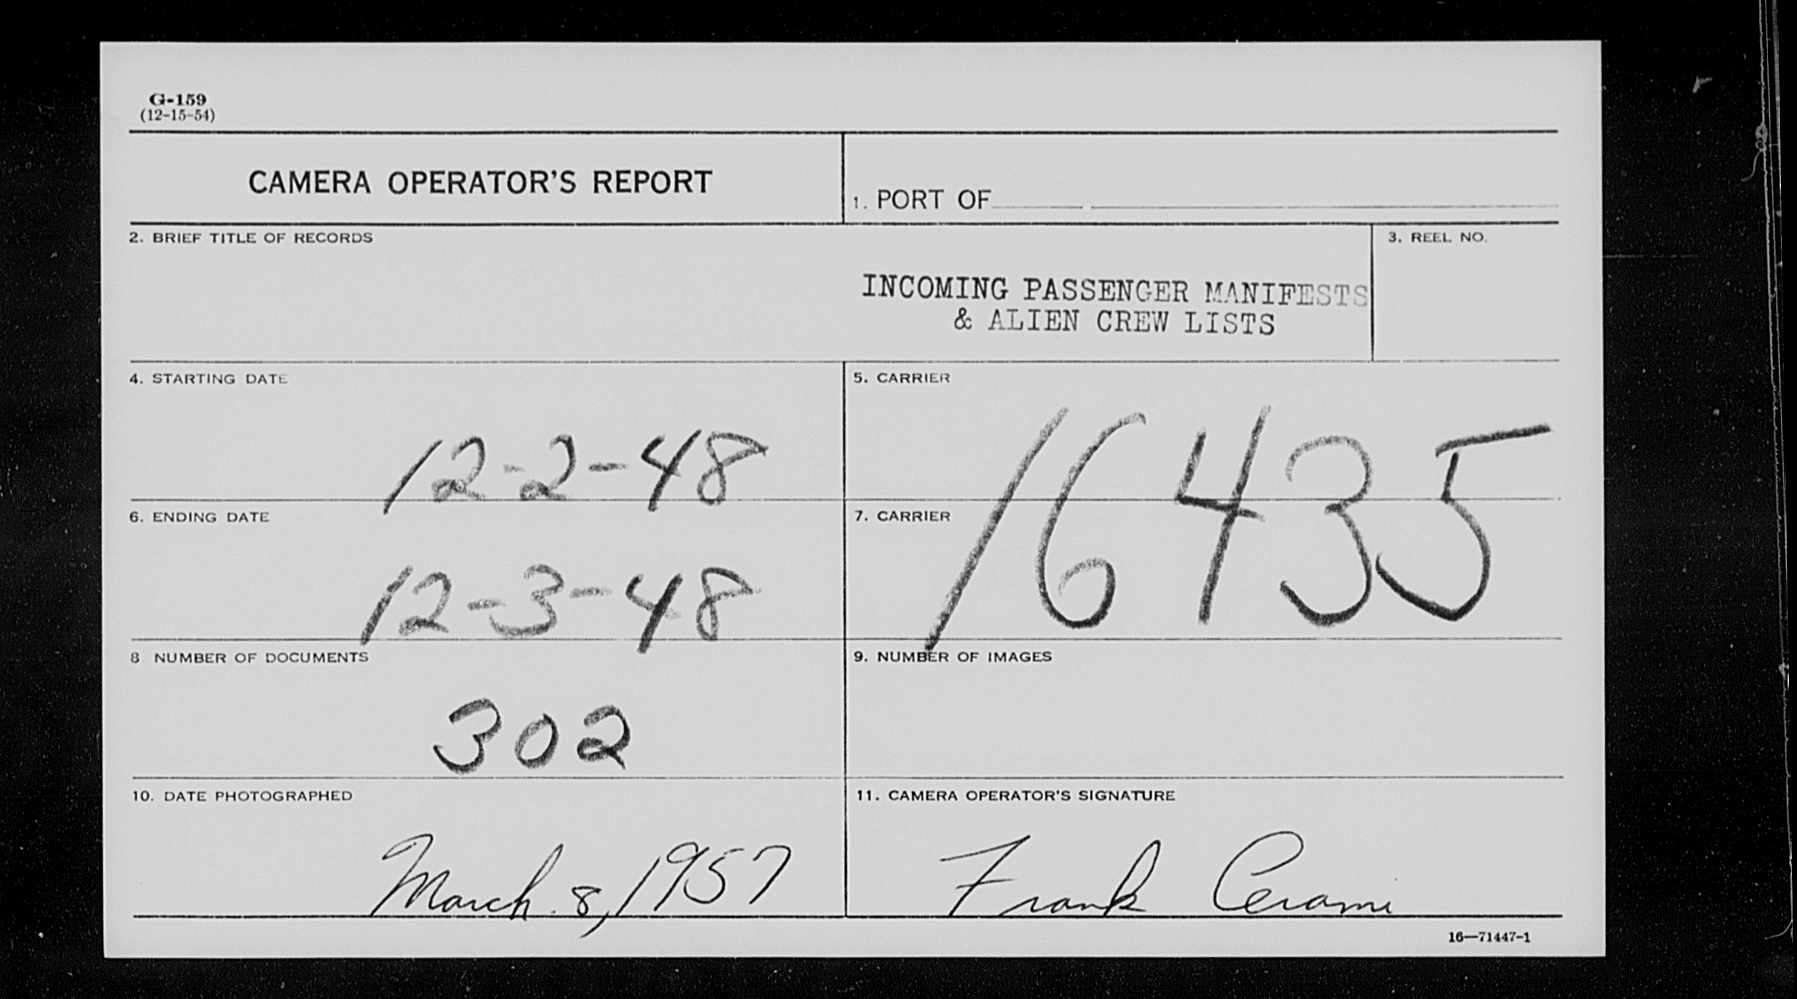 G-159
(12-15-54)
CAMERA OPERATOR'S REPORT
1. PORT OF
2. BRIEF TITLE OF RECORDS
3. REEL NO.
INCOMING PASSENGER MANIFESTS
& ALIEN CREW LISTS
4. STARTING DATE
12-2-48
5. CARRIER
16435
6. ENDING DATE
12-3-48
7. CARRIER
8 NUMBER OF DOCUMENTS
302
9. NUMBER OF IMAGES
10. DATE PHOTOGRAPHED
March 8, 1957
11. CAMERA OPERATOR'S SIGNATURE
Frank Cerami
16—71447-1